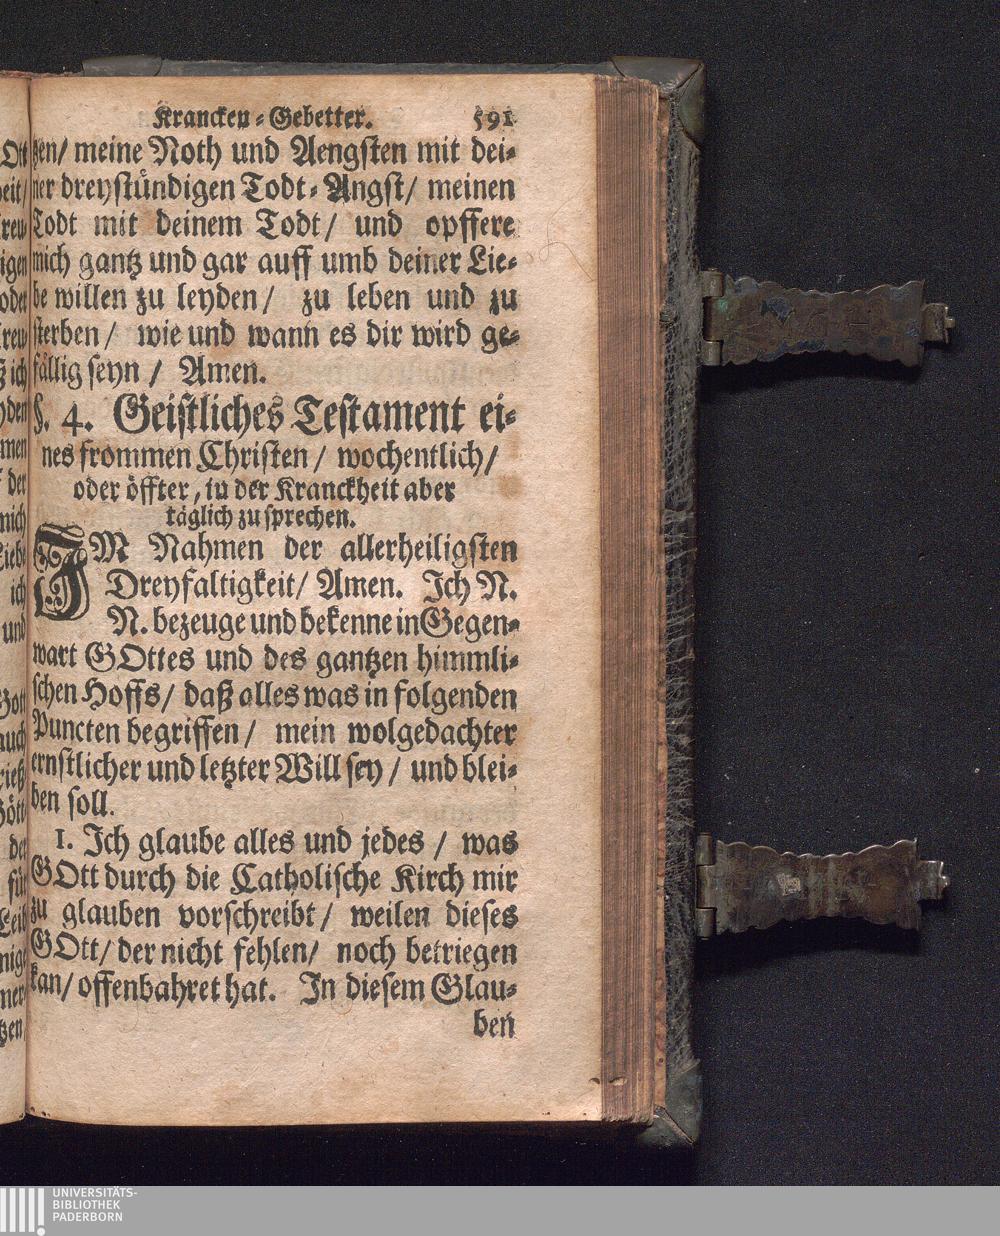 Krancken-Gebetter. 591
tzen/ meine Noth und Aengsten mit dei-
ner dreystündigen Todt-Angst/ meinen
Todt mit deinem Todt/ und opffere
mich gantz und gar auff umb deiner Lie-
be willen zu leyden/ zu leben und zu
sterben/ wie und wann es dir wird ge-
fällig seyn/ Amen.
§. 4. Geistliches Testament ei-
nes frommen Christen/ wochentlich/
oder öffter, in der Kranckheit aber
täglich zu sprechen.
IM Nahmen der allerheiligsten
Dreyfaltigkeit/ Amen. Ich N.
N. bezeuge und bekenne in Gegen-
wart GOttes und des gantzen himmli-
schen Hoffs/ daß alles was in folgenden
Puncten begriffen/ mein wolgedachter
ernstlicher und letzter Will sey/ und blei-
ben soll.
1. Ich glaube alles und jedes/ was
GOtt durch die Catholische Kirch mir
zu glauben vorschreibt/ weilen dieses
GOtt/ der nicht fehlen/ noch betriegen
kan/ offenbahret hat. In diesem Glau-
ben
UNIVERSITÄTS-
BIBLIOTHEK
PADERBORN